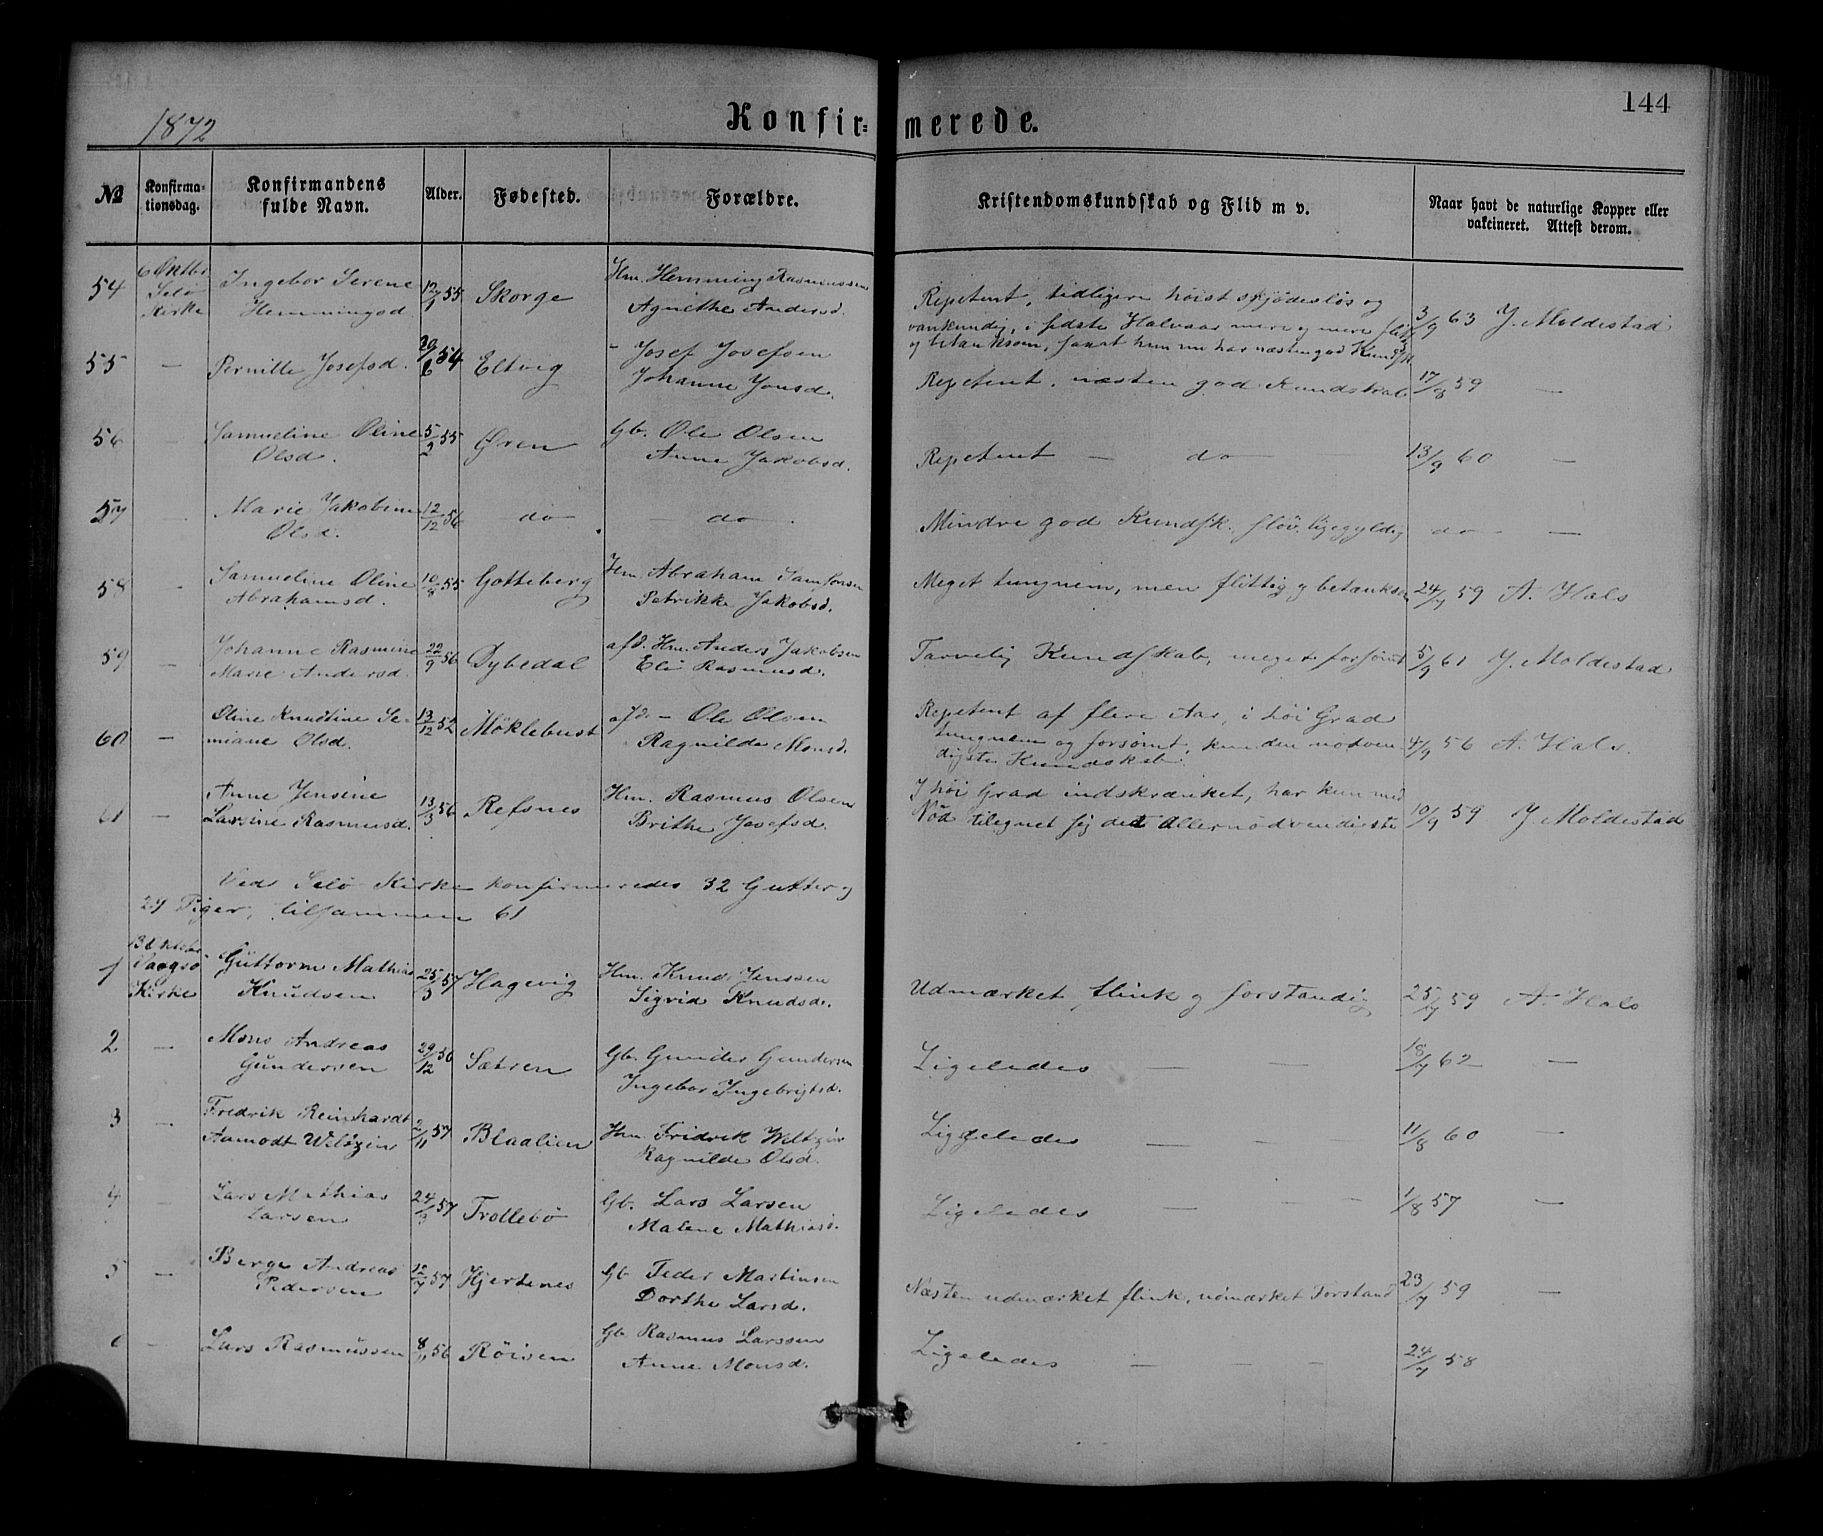 1872
Konfir= merede.
144
No Konfirma= tionsdag. Konfirmandens fulde Navn. Alder. Fødested. Forældre. Kristendomskundskab og Flid m v. Naar havt de naturlige Kopper eller vakcineret. Attest derom.
54 6 Oktbr Selø Kirke Ingebor Serene Hemmingsd. 12/1 55 Skorge Hm. Hemming Rasmussen Agnethe Andersd.
Repetent, tidligere høist skjødesløs og
vankundig, i sidste Halvaar mere og mere flit
og betænksom, saaat hun nu har næsten god Kundsk. 3/9 63 J. Moldestad
55 — Pernille Josefsd. 29/6 54 Eltvig — Josef Josefsen Johanne Jonsd. Repetent. næsten god Kundskab 17/8 59 —
56 — Samueline Oline Olsd. 5/2 55 Øren Gb. Ole Olsen Anne Jakobsd. Repetent — do 13/9 60 —
57 — Marie Jakobine Olsd. 12/12 56 do — do — Mindre god Kundsk. sløv, ligegyldig do —
58 — Samueline Oline Abrahamsd. 10/8 55 Gotteberg Hm. Abraham Samsonsen Petrikke Jakobsd. Meget tungnem, men flittig og betænksom 24/7 59 A. Hals
59 — Johanne Rasmine Marie Andersd. 22/9 56 Dybedal afd. Hm. Anders Jakobsen Eli Rasmusd. Tarvelig Kundskab, meget forsømt 5/9 61 J. Moldestad
60 — Oline Knudtine Se- miane Olsd. 13/12 52 Møklebust afd. — Ole Olsen Ragnilde Monsd.
Repetent af flere Aar, i høi Grad
tungnem og forsømt, kun den nødven
digste Kundskab. 4/9 56 A. Hals.
61 — Anne Jensine Larsine Rasmusd. 13/3 56 Refsnes Hm. Rasmus Olsen Brithe Josefsd.
I høi Grad indskrænket, har kun med
Nød tilegnet sig det allernødvendigste 10/9 59 J. Moldestad
Ved Selø Kirke konfirmeredes 32 Gutter og
29 Piger, tilsammen 61
1 13 Oktobr Vaagsø Kirke Guttorm Mathias Knudsen 25/3 57 Hagevig Hm. Knud Jenssen Sigrid Knudsd. Udmærket flink og forstandig 25/7 59 A. Hals
2 — Mons Andreas Gundersen 29/12 56 Sætren Gb. Gunder Gundersen Ingebor Ingebrigtsd. Ligeledes — — 18/7 62 —
3 — Fredrik Reinhardt Aamodt Weltzin 2/11 57 Blaalien Hm. Fridrik Weltzin Ragnilde Olsd. Ligeledes — — 11/8 60 —
4 — Lars Mathias Larsen 24/3 57 Trollebø Gb. Lars Larsen Malene Mathiasd. Ligeledes — — — 1/8 57 —
5 — Berge Andreas Pedersen 12/7 57 Hjertenes Gb. Peder Martinsen Dorthe Larsd. Næsten udmærket flink, udmærket Forstand 23/7 59 —
6 — Lars Rasmussen 8/11 56 Røisen Gb. Rasmus Larssen Anne Monsd. Ligeledes — — — 24/7 58